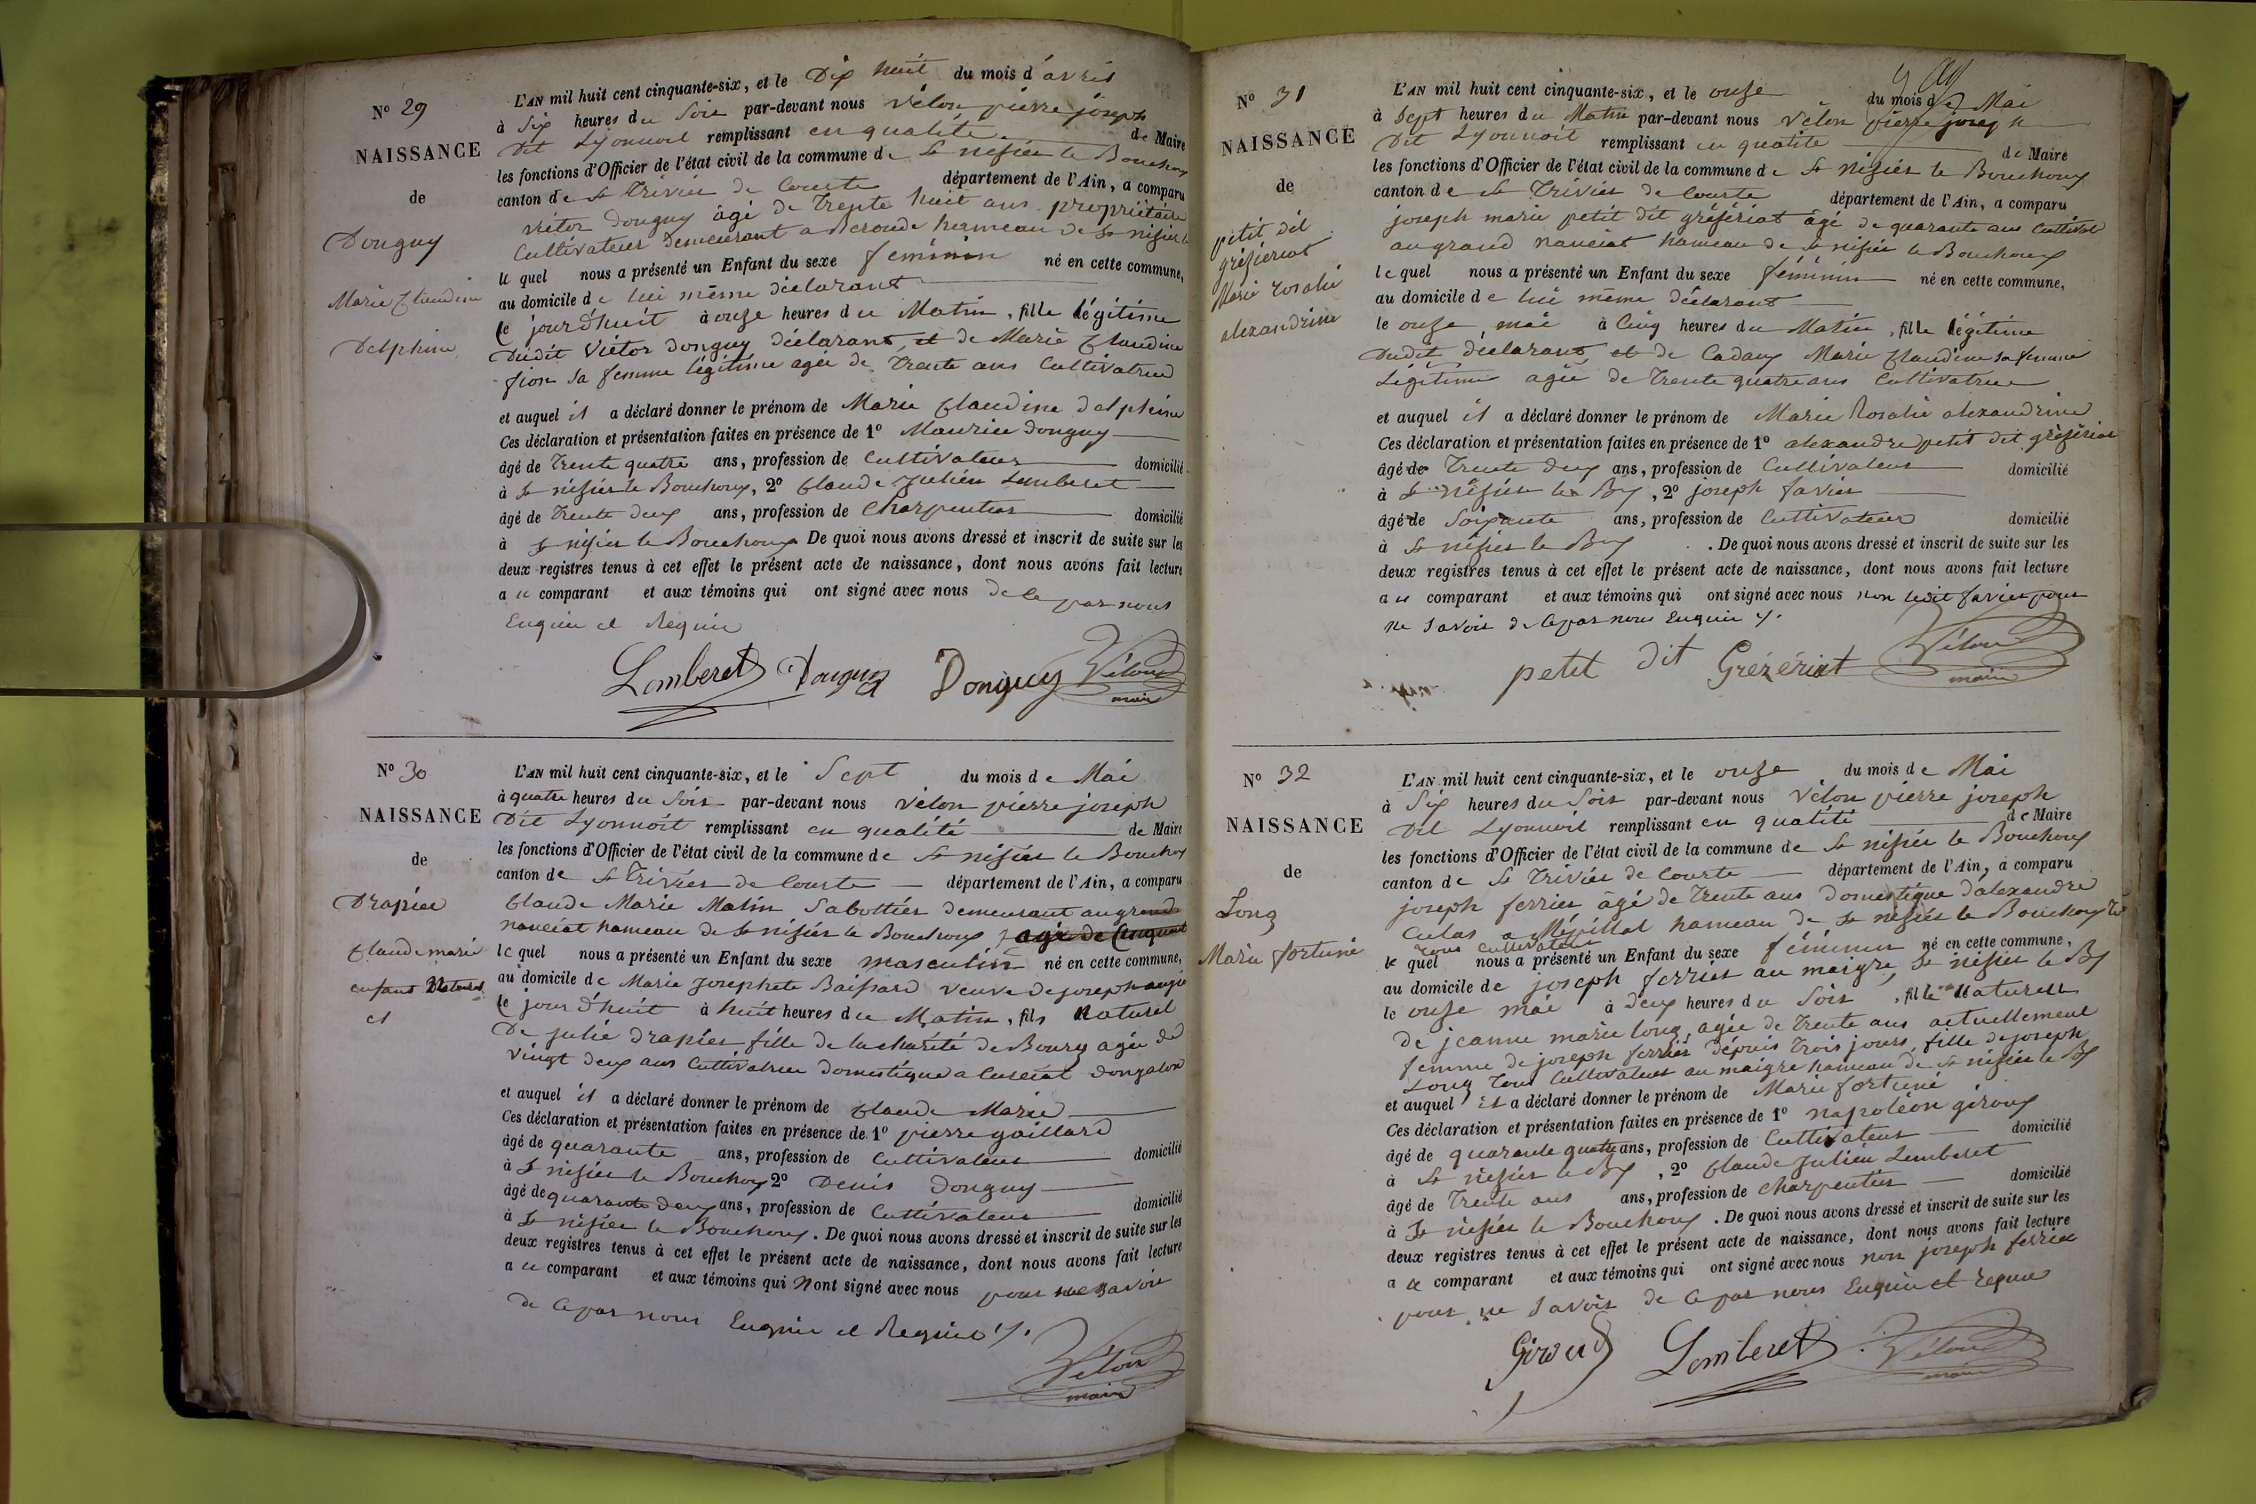 N° 29
NAISSANCE
de
Donguy
Marie Claudine
Delphine
L'AN mil huit cent cinquante-six, et le Dix huit du mois d'avril
à Six heures du Soir par-devant nous Vélon pierre joseph
Dit Lyonnoit remplissant en qualité de Maire
les fonctions d'Officier de l'état civil de la commune de St nisier le Bouchoux
canton de St Trivier de Courte département de l'Ain, a comparu
Victor Donguy âgé de Trente huit ans propriétaire
Cultivateur Demeurant a hameau de St nisier le
le quel nous a présenté un Enfant du sexe féminin né en cette commune,
au domicile de lui même déclarant
le jourd'huit à onze heures du Matin, fille légitime
Dudit Victor Donguy déclarant, et de Marie Claudine
fion sa femme légitime agée de Trente ans Cultivatrice
et auquel il a déclaré donner le prénom de Marie Claudine delphine
Ces déclaration et présentation faites en présence de 1° Maurice Donguy
âgé de Trente quatre ans, profession de Cultivateur domicilié
à St nisier le Bouchoux, 2° Claude Julien Lemberet
âgé de Trente deux ans, profession de Charpentier domicilié
à St nisier le Bouchoux De quoi nous avons dressé et inscrit de suite sur les
deux registres tenus à cet effet le présent acte de naissance, dont nous avons fait lecture
a u comparant et aux témoins qui ont signé avec nous de ce par nous
Enquie et Requie
Lemberet Donguy Donguy Vélon
maire
N° 30
NAISSANCE
de
Drapier
Claude marie
enfant Naturel
L'AN mil huit cent cinquante-six, et le Sept du mois de Mai
à quatre heures du Soir par-devant nous Vélon pierre joseph
Dit Lyonnoit remplissant en qualité de Maire
les fonctions d'Officier de l'état civil de la commune de St nisier le Bouchoux
canton de St Trivier de Courte département de l'Ain, a comparu
Claude Marie Matin Sabottier demeurant au grand
nanciat hameau de St nisier le Bouchoux, agé de Cinquante
le quel nous a présenté un Enfant du sexe masculin né en cette commune,
au domicile de Marie Josephete Baissard veuve de joseph
le jour d'huit à huit heures du Matin, fils Naturel
De julie drapier fille de la charité de Bourg agée de
vingt deux ans Cultivatrice domestique a Curciat Dongalon
et auquel il a déclaré donner le prénom de Claude Marie
Ces déclaration et présentation faites en présence de 1° pierre gaillard
âgé de quarante ans, profession de Cultivateur domicilié
à St nisier le Bouchoux 2° Denis Donguy
âgé de quarante deux ans, profession de Cultivateur domicilié
à St nisier le Bouchoux. De quoi nous avons dressé et inscrit de suite sur les
deux registres tenus à cet effet le présent acte de naissance, dont nous avons fait lecture
a u comparant et aux témoins qui Nont signé avec nous pour ne savoir
de ce par nous Enquie et Requie
Vélon
maire
N° 31
NAISSANCE
de
petit dit
grésieriat
Marie rosalie
alexandrine
L'AN mil huit cent cinquante-six, et le onze du mois de Mai
à Sept heures du Matin par-devant nous Vélon pierre joseph
Dit Lyonnoit remplissant en qualité de Maire
les fonctions d'Officier de l'état civil de la commune de St nisier le Bouchoux
canton de St Trivier de Courte département de l'Ain, a comparu
joseph marie petit dit grésériat âgé de quarante ans Cultivat
au grand nanciat hameau de St nisier le Bouchoux
le quel nous a présenté un Enfant du sexe féminin né en cette commune,
au domicile de lui même déclarant
le onze mai à Cinq heures du Matin, fille légitime
Dudit déclarant, et de Cadoux Marie Claudine sa femme
Légitime agée de Trente quatre ans Cultivatrice
et auquel il a déclaré donner le prénom de Marie Rosalie alexandrine
Ces déclaration et présentation faites en présence de 1° alexandre petit dit grésériat
âgé de Trente deux ans, profession de Cultivateur domicilié
à St nisier le Bx, 2° joseph favier
âgé de Soixante ans, profession de Cultivateur domicilié
à St nisier le Bx . De quoi nous avons dressé et inscrit de suite sur les
deux registres tenus à cet effet le présent acte de naissance, dont nous avons fait lecture
a u comparant et aux témoins qui ont signé avec nous non ledit favier pour
ne savoir de ce par nous Enquie
petit dit Grézériat Vélon
maire
N° 32
NAISSANCE
de
Long
Marie fortuné
L'AN mil huit cent cinquante-six, et le onze du mois de Mai
à Six heures du Soir par-devant nous Vélon pierre joseph
Dit Lyonnoit remplissant en qualité de Maire
les fonctions d'Officier de l'état civil de la commune de St nisier le Bouchoux
canton de St Trivier de Courte département de l'Ain, a comparu
joseph ferrier âgé de Trente ans domestique d'alexandre
Cutas a Mépillat hameau de St nisier le Bouchoux
tous cultivateur
le quel nous a présenté un Enfant du sexe féminin né en cette commune,
au domicile de joseph ferrier au maigre, St nisier le Bx
le onze mai à deux heures du Soir, fille Naturelle
de jeanne marie long, agée de Trente ans actuellement
femme de joseph ferrier depuis Trois jours, fille de joseph
Long Tous Cultivateur au maigre hameau de St nisier le Bx
et auquel il a déclaré donner le prénom de Marie fortuné
Ces déclaration et présentation faites en présence de 1° napoléon giroux
âgé de quarante quatre ans, profession de Cultivateur domicilié
à St nisier le Bx, 2° Claude Julien Lemberet
âgé de Trente ans ans, profession de charpentier domicilié
à St nisier le Bouchoux. De quoi nous avons dressé et inscrit de suite sur les
deux registres tenus à cet effet le présent acte de naissance, dont nous avons fait lecture
a u comparant et aux témoins qui ont signé avec nous non joseph ferrier
pour ne savoir de ce par nous Enquie et requie
Giroud Lemberet Vélon
maire